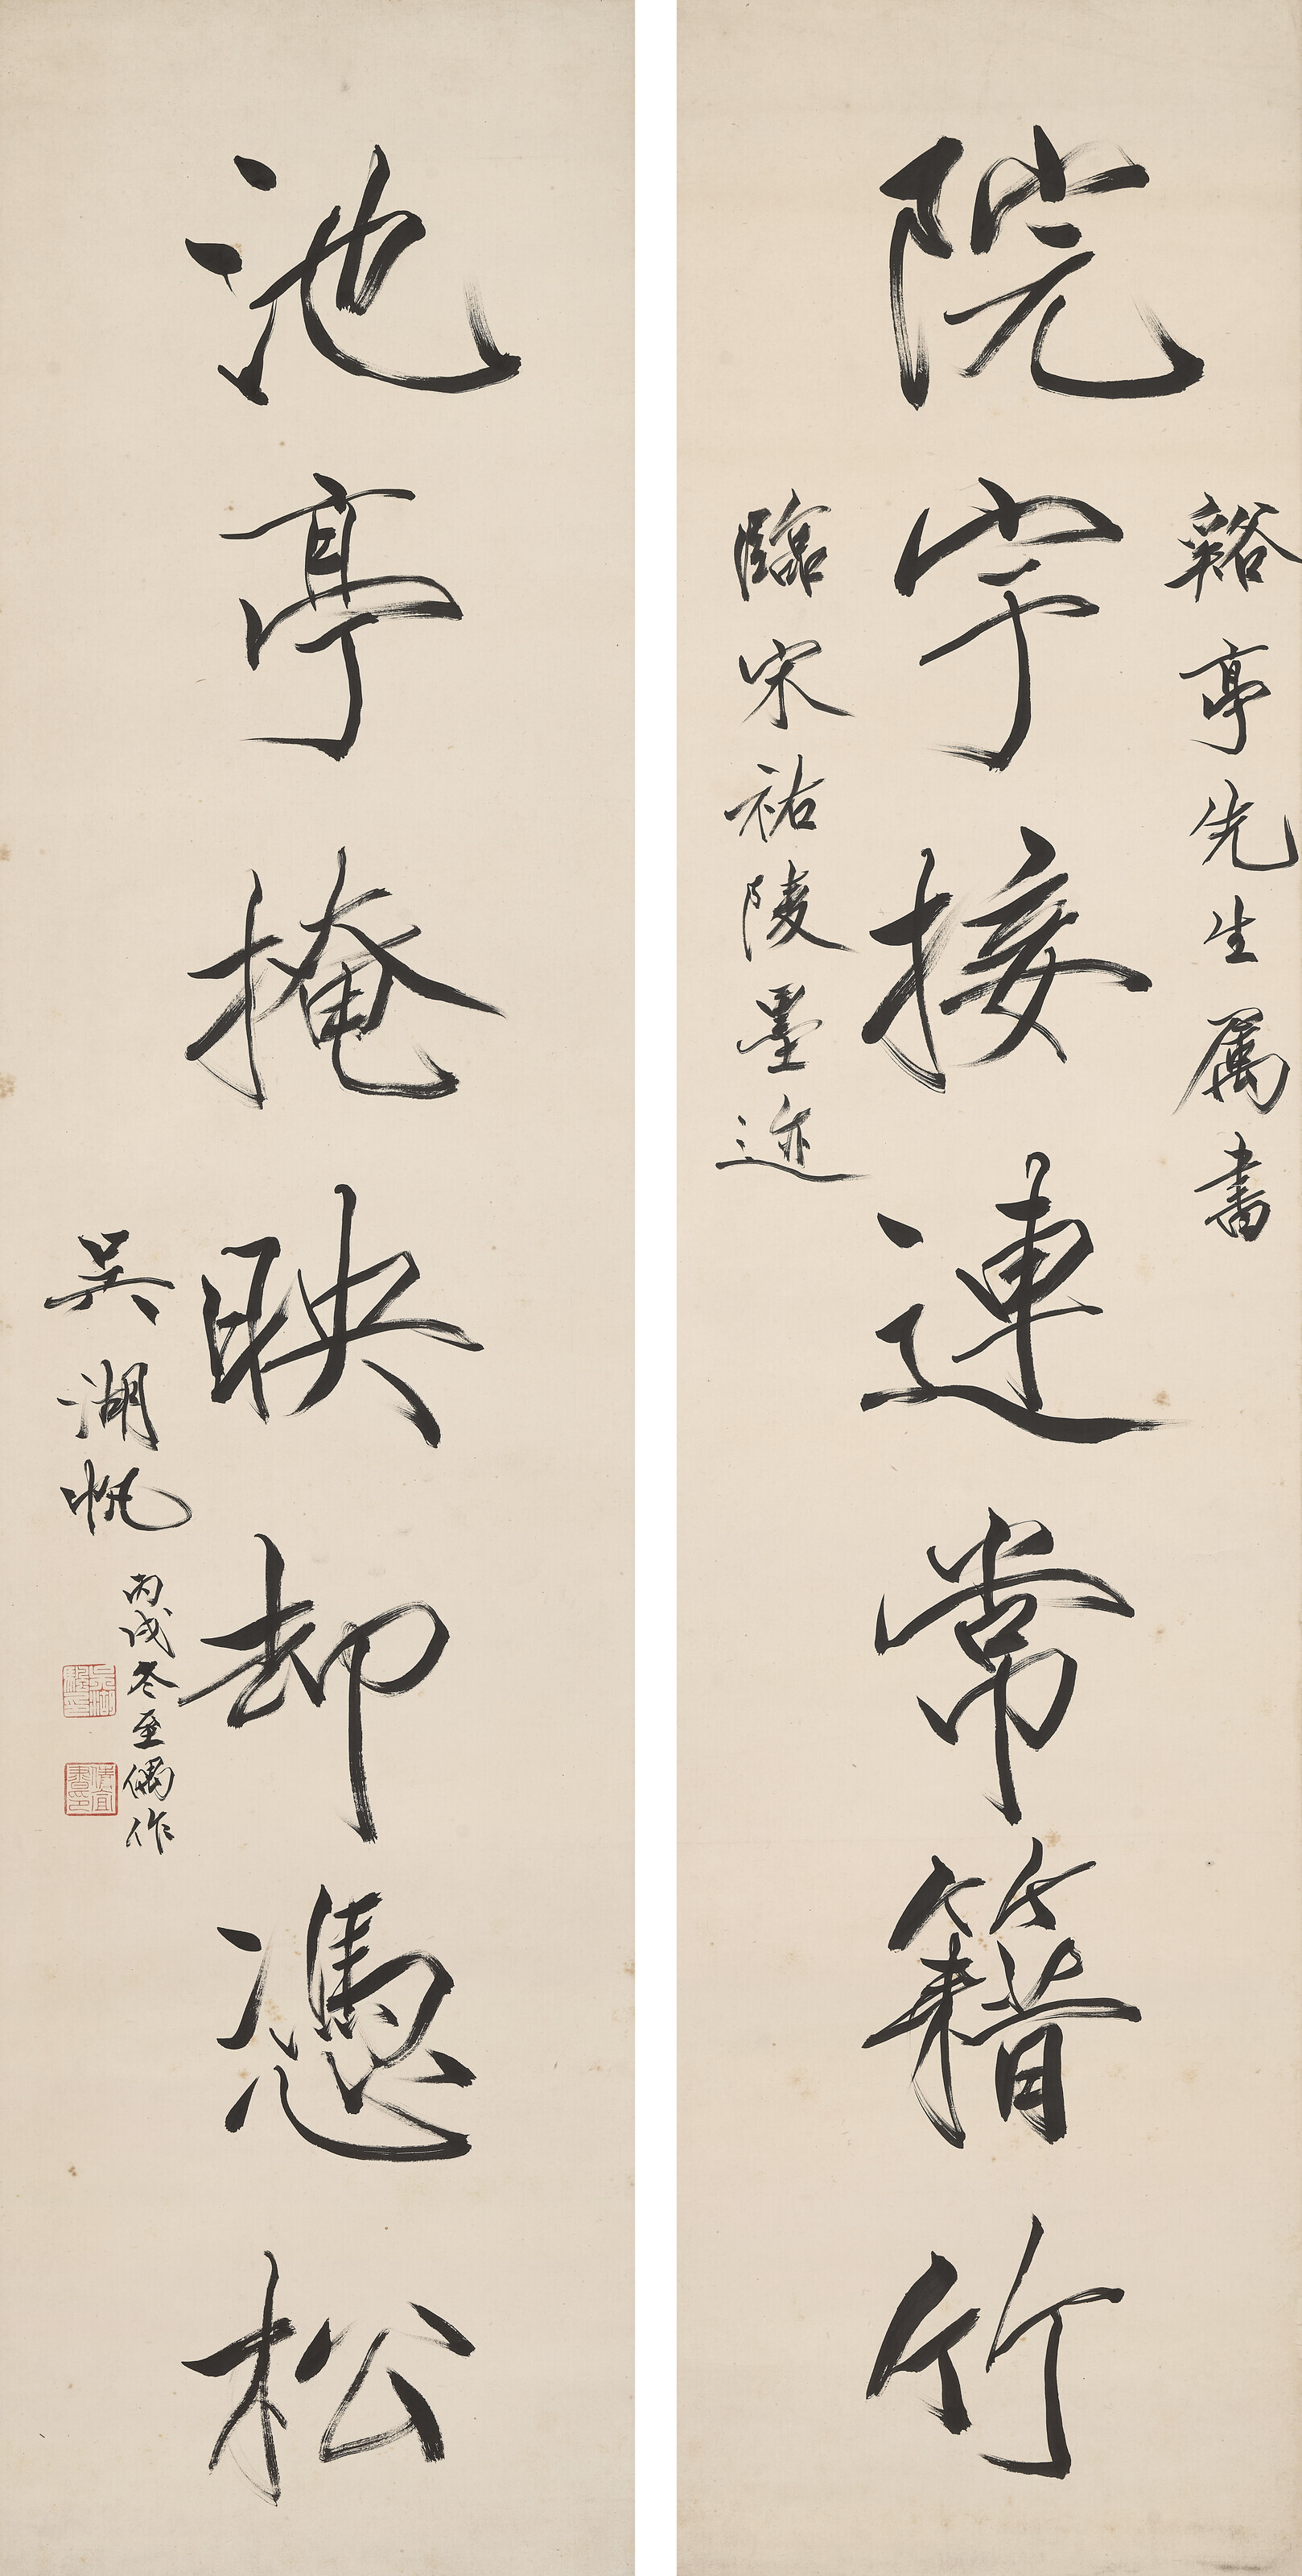 谿亭先生属書
院宇接連常籍竹
臨宋祐陵墨迹
池亭掩映却憑松
吳湖帆
丙戌冬至偶作